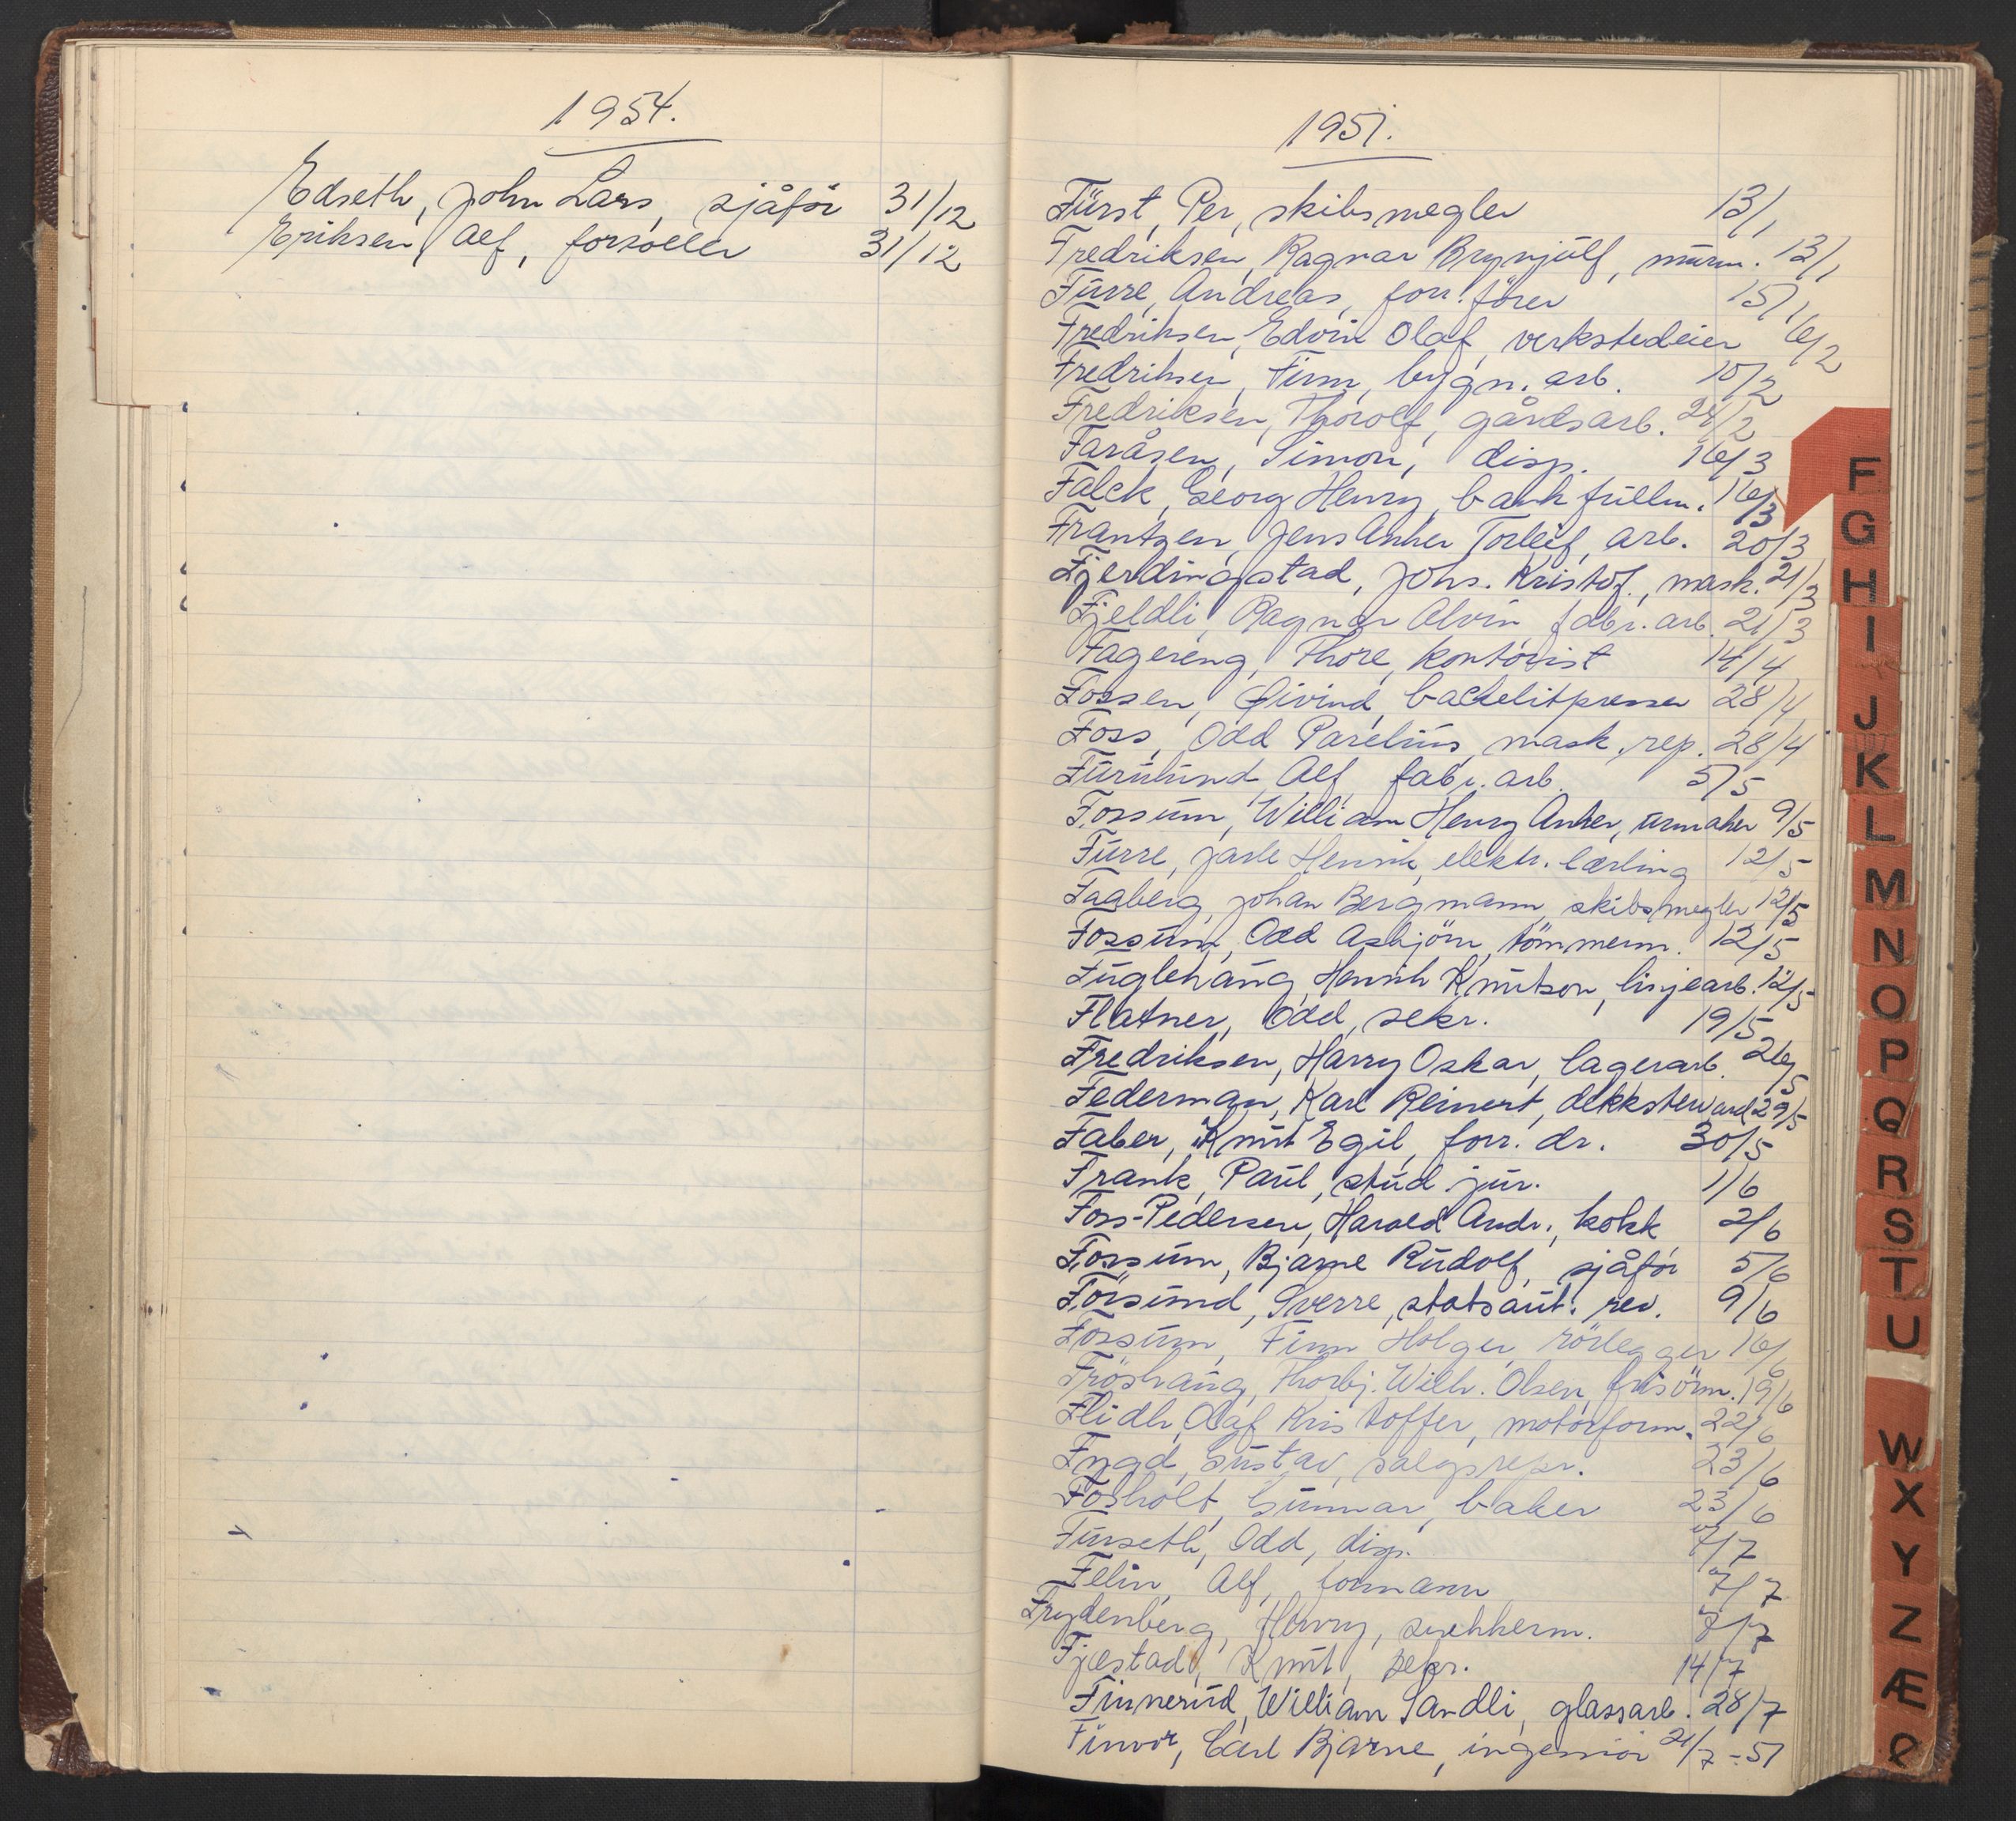 1954.
Edseth, John Lars, sjåför 31/12
Eriksen, Alf, forsöller 31/12
1951.
Fürst, Per, skibsmegler 13/1
Fredriksen, Ragnar Brynjulf, murm. 13/1
Furre, Andreas, forr. förer 15/1
Fredriksen, Edvin Olaf, verkstedeier 6/2
Fredriksen, Finn, bygn. arb. 10/2
Fredriksen, Thorolf, gårdsarb. 24/2
Faråsen, Simon, disp. 16/3
Falck, Georg Henry, bankfullm. 16/3
Frantzen, Jens Anker Torleif, arb. 20/3
Fjerdingstad, Johs. Kristof., mask. 21/3
Fjeldli, Ragnar Alvin, fabr. arb. 21/3
Fagereng, Thore, kontorist 14/4
Fossen, Øivind, backelitpresser 28/4
Foss, Odd Parelius, mask. rep. 28/4
Furulund, Alf, fabr. arb. 5/5
Fossum, William Henry Anker, urmaker 9/5
Furre, Jarle Henrik, elektr. lærling 12/5
Faaberg, Johan Bergmann, skibsmegler 12/5
Fossum, Odd Asbjörn, tömmerm. 12/5
Fuglehaug, Henrik Knutson, linjearb. 12/5
Flatner, Odd, sekr. 19/5
Fredriksen, Harry Oskar, lagerarb. 26/5
Federman, Karl Reinert, dekksteward 29/5
Faber, Knut Egil, forr. dr. 30/5
Frank, Paul, stud jur. 1/6
Foss-Pedersen, Harald Andr., kokk 2/6
Fossum, Bjarne Rudolf, sjåför 5/6
Försund, Sverre, statsaut. rev. 9/6
Fossum, Finn Holger, rörlegger 16/6
Fröshaug, Thorbj. Wilh. Olsen, frisörm. 19/6
Flidh, Olaf Kristoffer, motorform. 22/6
Fygd, Gustav, salgsrepr. 23/6
Fosholt, Gunnar, baker 23/6
Furseth, Odd, disp. 7/7
Felin, Alf, formann 7/7
Frydenberg, Henry, snekkerm. 7/7
Fjæstad, Knut, sekr. 14/7
Finnerud, William Sandli, glassarb. 28/7
Finvor, Carl Bjarne, ingeniör 21/7-51
F
G
H
I
J
K
L
M
N
O
P
Q
R
S
T
U
W
X
Y
Z
Æ
Ø